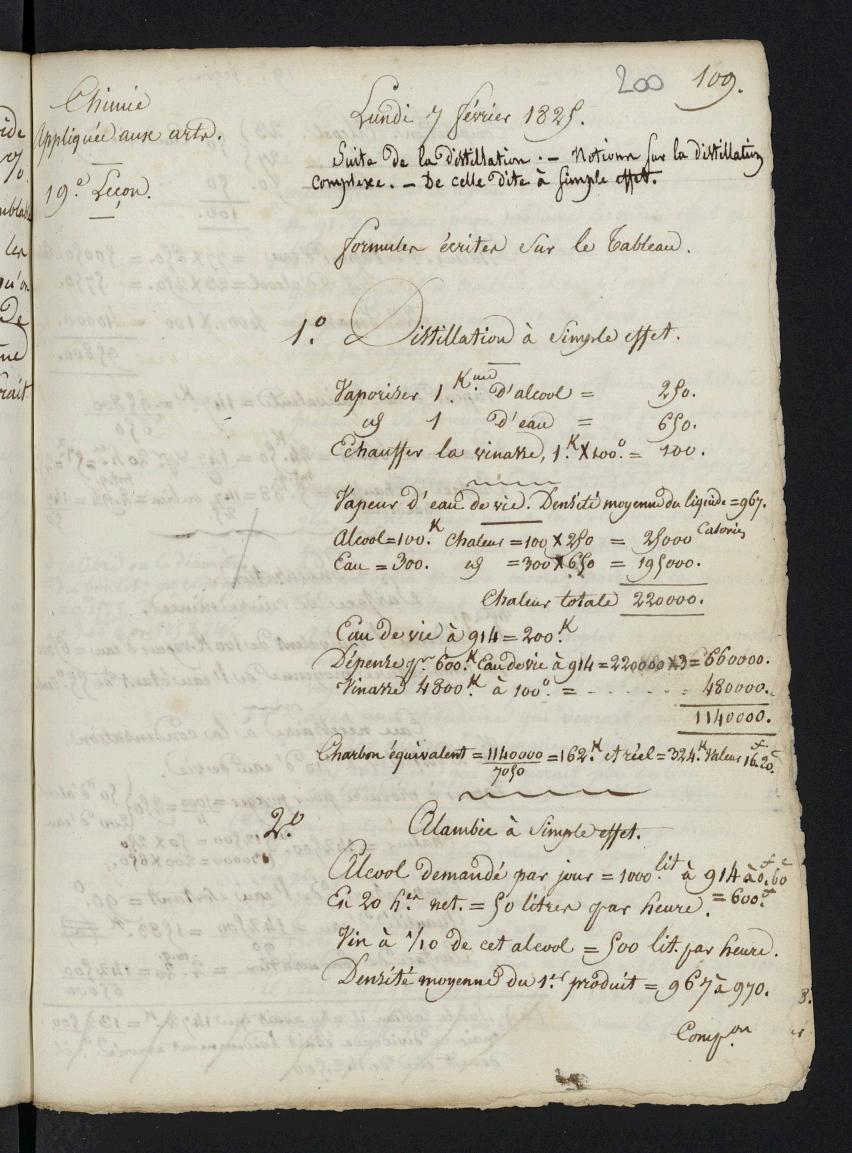 200 109.
Chimie
Appliquée aux arts.
19.e Leçon.
Lundi 7 février 1825.
Suite de la distillation. — Notions sur la distillation
complexe. — De celle dite à simple effet.
formules écrites sur le Tableau.
1.° Distillation à simple effet.
Vaporiser 1.K d'alcool = 250.
id 1 d'eau = 650.
Echauffer la vinasse, 1.K X 100.° = 100.
Vapeur d'eau de vie. Densité moyenne du liquide = 967.
Alcool = 100.K Chaleur = 100 X 250 = 25000 Calories
Eau = 300. id = 300 X 650 = 195000.
Chaleur totale 220000.
Eau de vie à 914 = 200.K
Dépense pr 600.K Eau de vie à 914 = 220000 X 3 = 660000.
Vinasse 4800.K à 100° = - . . - - - . = 480000.
1140000.
Charbon équivalent = 1140000/7050 = 162.K et réel = 324.K Valeur 16.f 20.c
2.° Alambic à simple effet.
Alcool demandé par jour = 1000.lit à 914 à 0,f 60c
En 20 h.es net. = 50 litres par heure. = 600.f
Vin à 1/10 de cet alcool = 500 lit. par heure.
Densité moyenne du 1.er produit = 967 à 970.
Comp.on